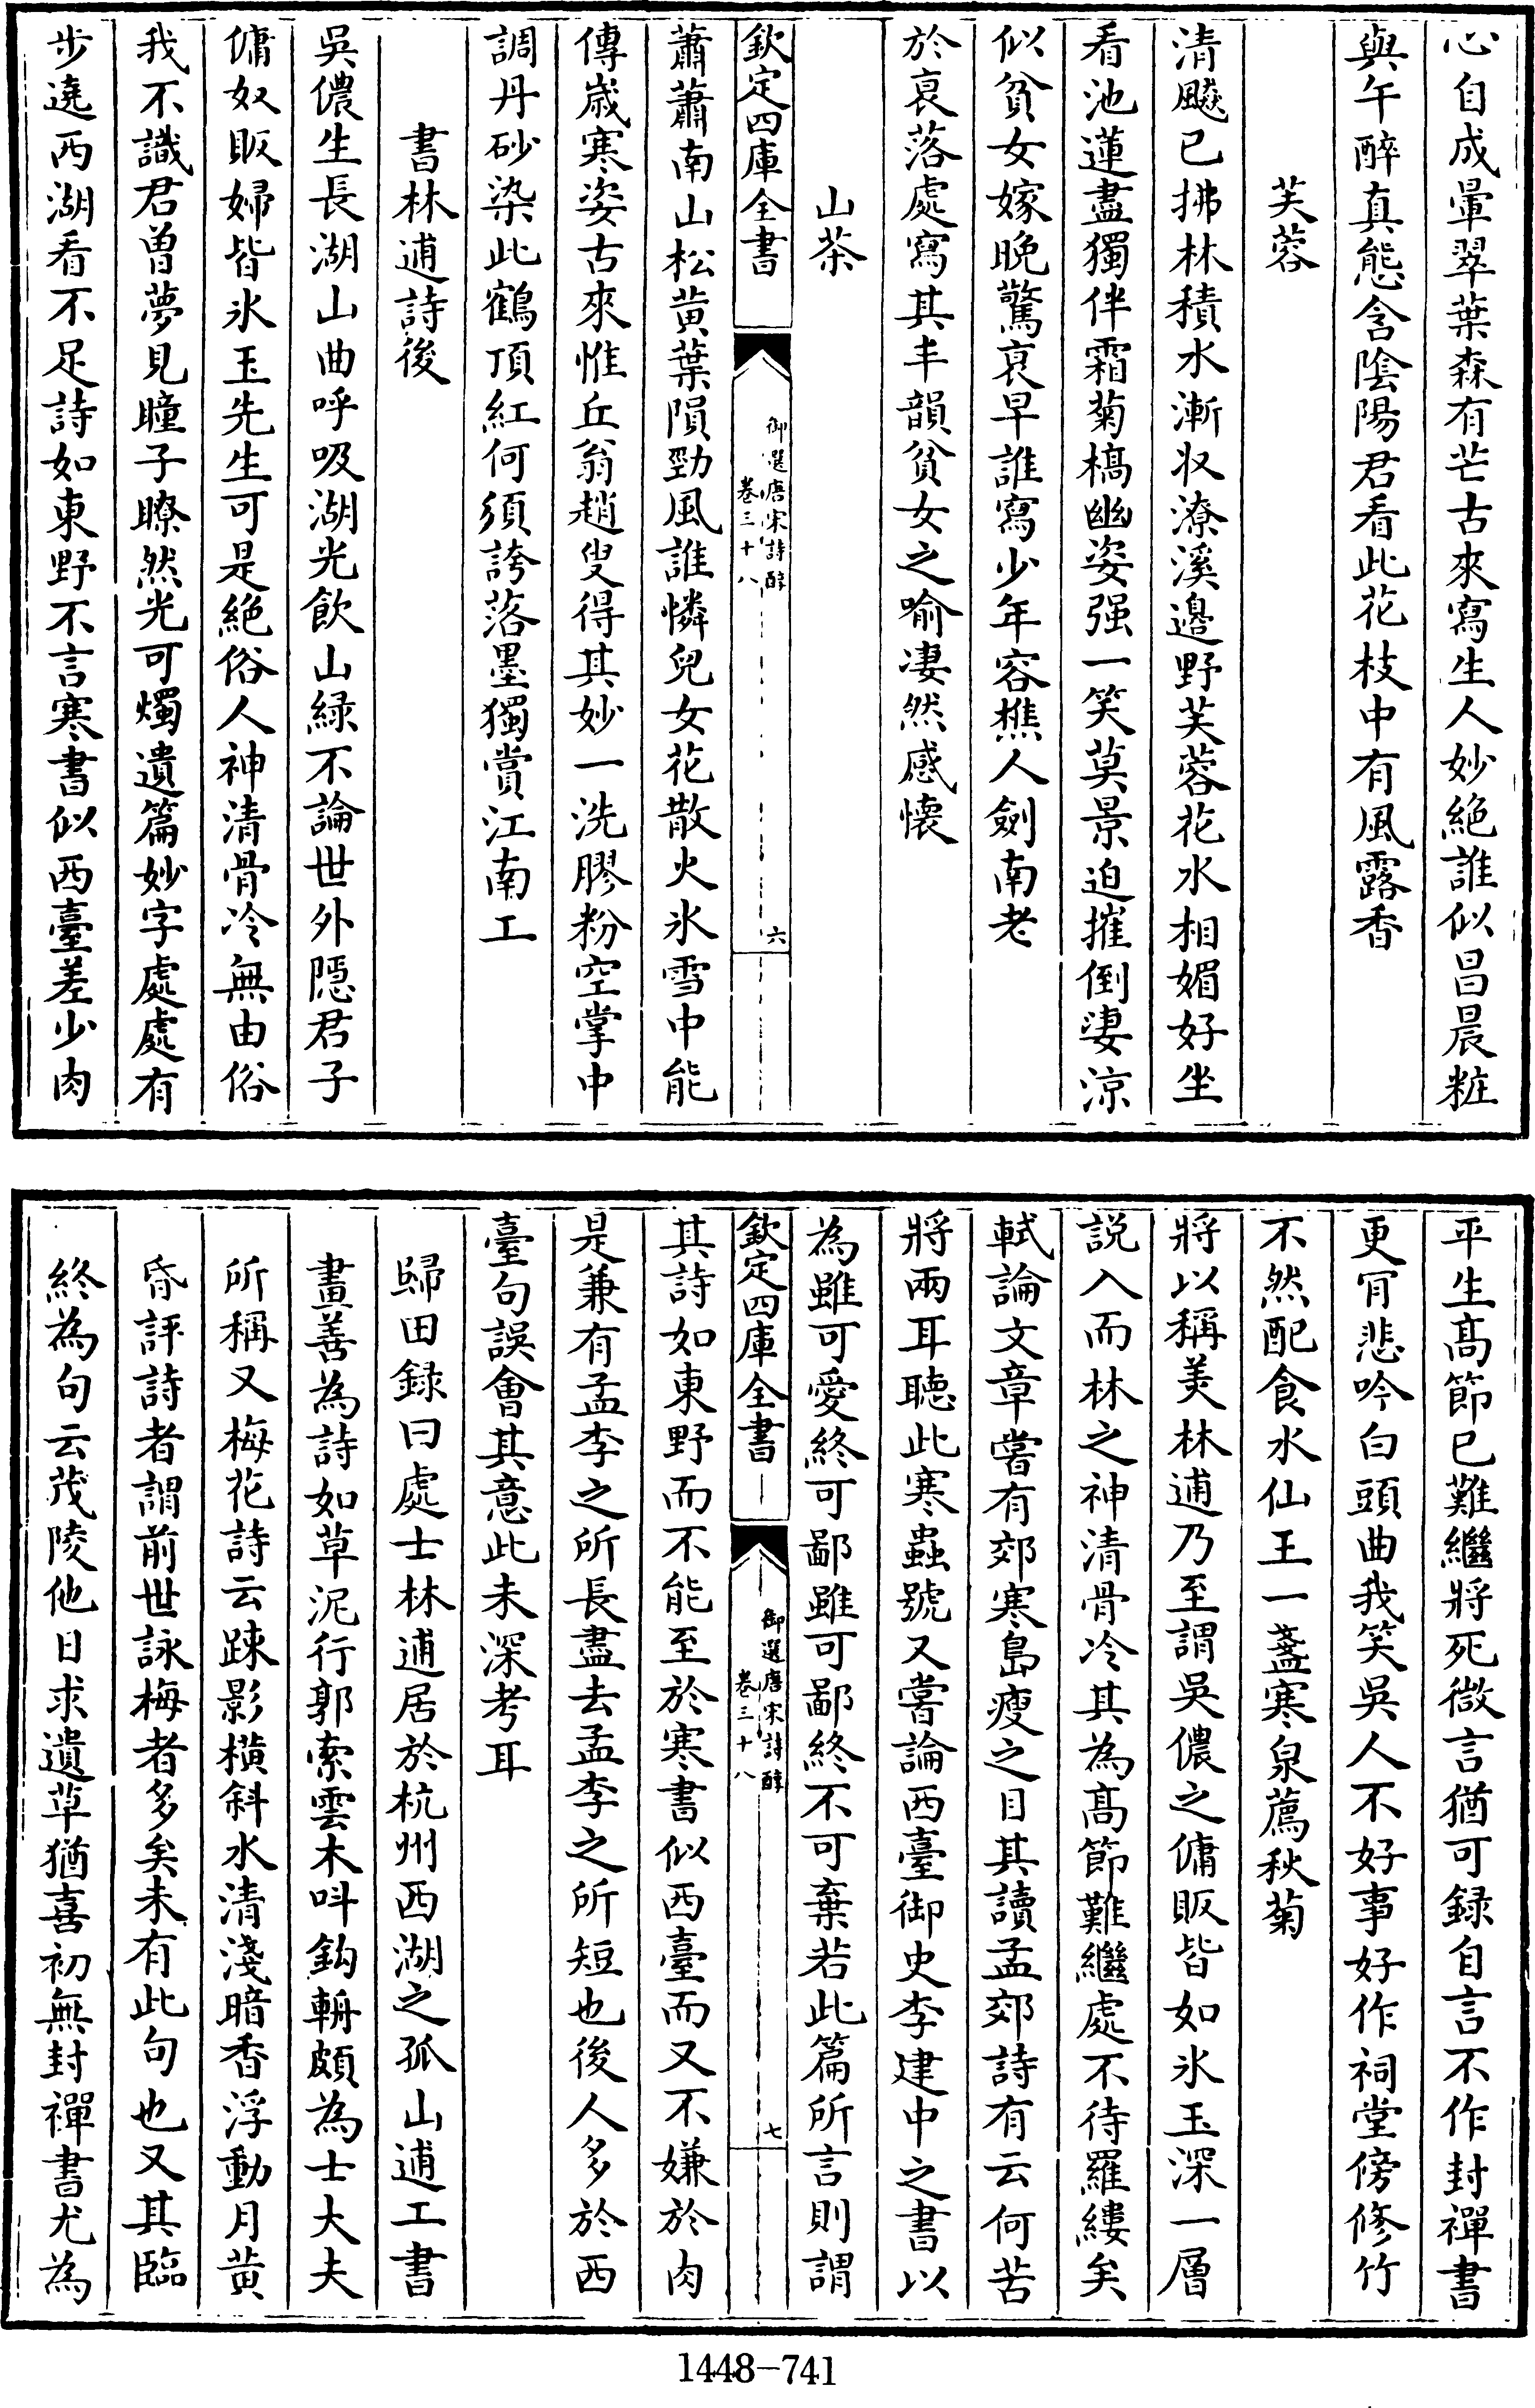 心自成暈翠葉森有芒古來寫生人妙絕誰似昌晨粧
與午醉真態含陰陽君看此花枝中有風露香
芙蓉
清飈已拂林積水漸收潦溪邉野芙蓉花水相媚好坐
看池蓮盡獨伴霜菊槁幽姿强一笑莫景迫摧倒淒涼
似貧女嫁晚驚衰早誰寫少年容樵人劍南老
於衰落處寫其丰韻貧女之喻凄然感懷
山茶
欽定四庫全書
御選唐宋詩醇
卷三十八
六
蕭蕭南山松黄葉隕勁風誰憐兒女花散火氷雪中能
傳嵗寒姿古來惟丘翁趙叟得其妙一洗膠粉空掌中
調丹砂染此鶴頂紅何須誇落墨獨賞江南工
書林逋詩後
吳儂生長湖山曲呼吸湖光飲山緑不論世外隱君子
傭奴販婦皆氷玉先生可是絕俗人神清骨冷無由俗
我不識君曽夢見瞳子瞭然光可燭遺篇妙字處處有
步遶西湖看不足詩如東野不言寒書似西臺差少肉
平生髙節已難繼將死微言猶可録自言不作封禪書
更肎悲吟白頭曲我笑吳人不好事好作祠堂傍修竹
不然配食水仙王一盞寒泉薦秋菊
將以稱美林逋乃至謂吳儂之傭販皆如氷玉深一層
説入而林之神清骨冷其為髙節難繼處不待羅縷矣
軾論文章嘗有郊寒島瘦之目其讀孟郊詩有云何苦
將兩耳聽此寒蟲號又嘗論西臺御史李建中之書以
為雖可愛終可鄙雖可鄙終不可棄若此篇所言則謂
欽定四庫全書
御選唐宋詩醇
卷三十八
七
其詩如東野而不能至於寒書似西臺而又不嫌於肉
是兼有孟李之所長盡去孟李之所短也後人多於西
臺句誤會其意此未深考耳
歸田録曰處士林逋居於杭州西湖之孤山逋工書
畫善為詩如草泥行郭索雲木呌鈎輈頗為士大夫
所稱又梅花詩云踈影橫斜水清淺暗香浮動月黄
昏評詩者謂前世詠梅者多矣未有此句也又其臨
終為句云茂陵他日求遺草猶喜初無封禪書尤為
1448-741